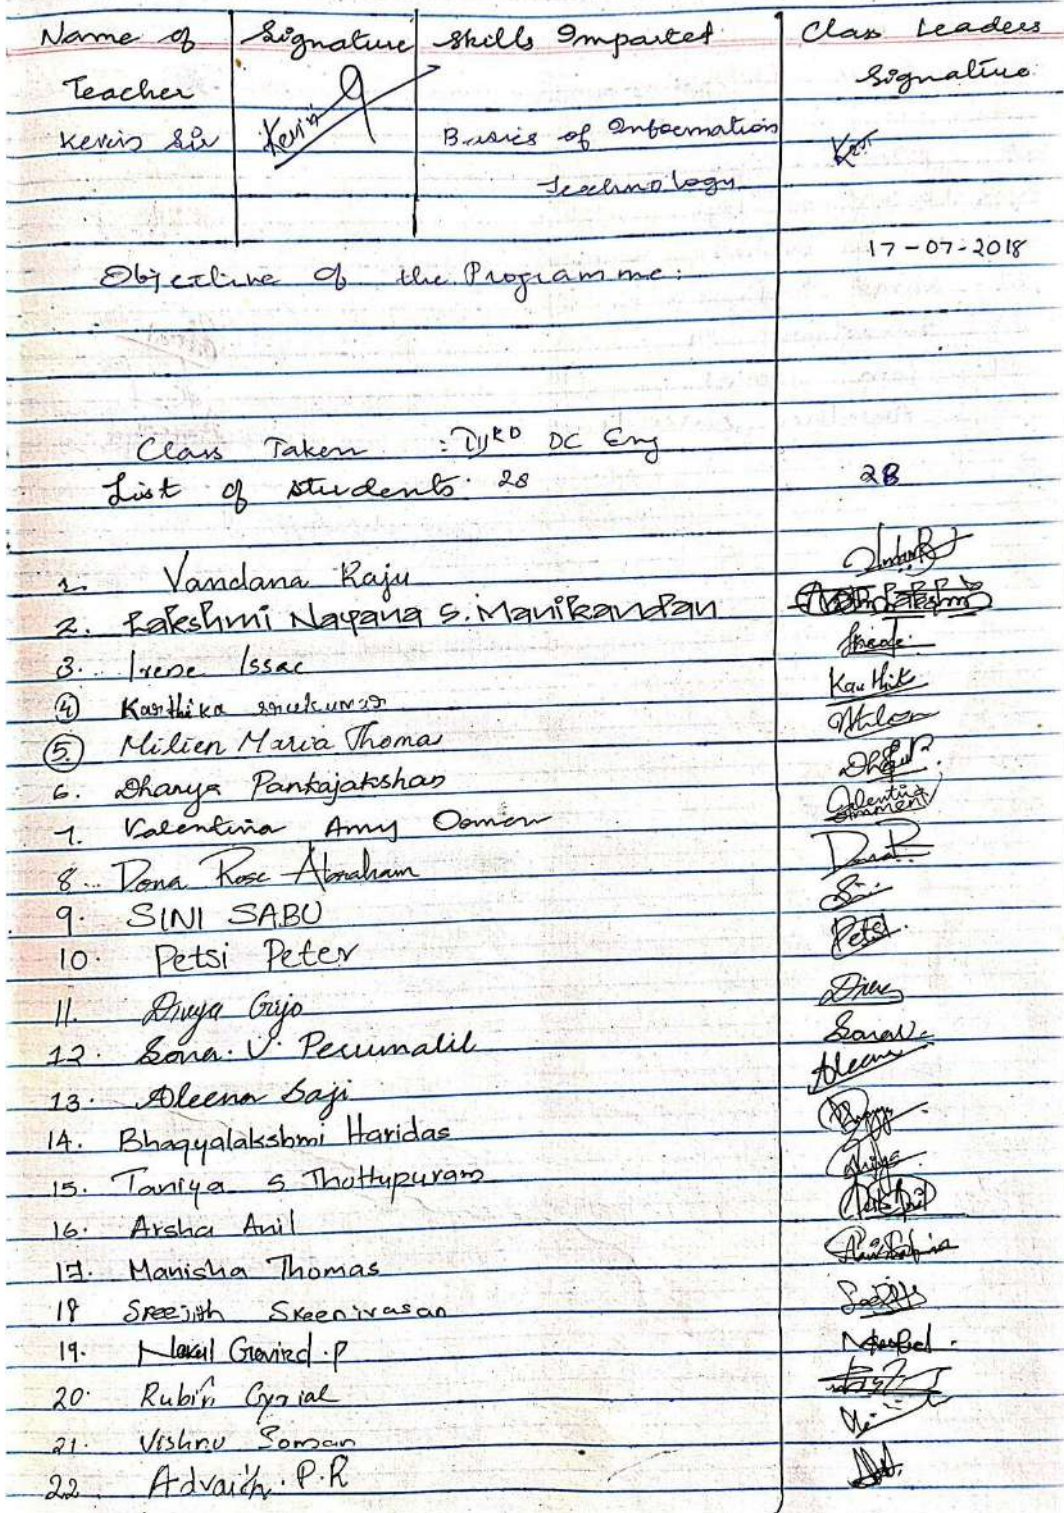 Name of Signature Skills Imparted Class Leaders
Teacher Signature
Kevin Sir Kevin Basics of Information
Technology
17-07-2018
Objective of the Programme:
Class Taken : IIIRD DC Eng
List of students. 28 28
1. Vandana Raju
2. Lakshmi Nayana S. Manikandan
3. Irene Issac
4 Karthika Sreekumar Karthik
5. Milien Maria Thomas
6. Dhanya Pankajakshan
7. Valentina Amy Oomen
8. Dona Rose Abraham
9. SINI SABU Sini
10. Petsi Peter
11. Divya Gijo
12. Sona. V. Perumalil
13. Aleena Saji Aleena
14. Bhagyalakshmi Haridas
15. Taniya S Thottupuram
16. Arsha Anil
17. Manisha Thomas
18 Sreejith Sreenivasan
19. Nakul Govind .P
20. Rubin Cyrial
21. Vishnu Soman
22 Advaith. P.R